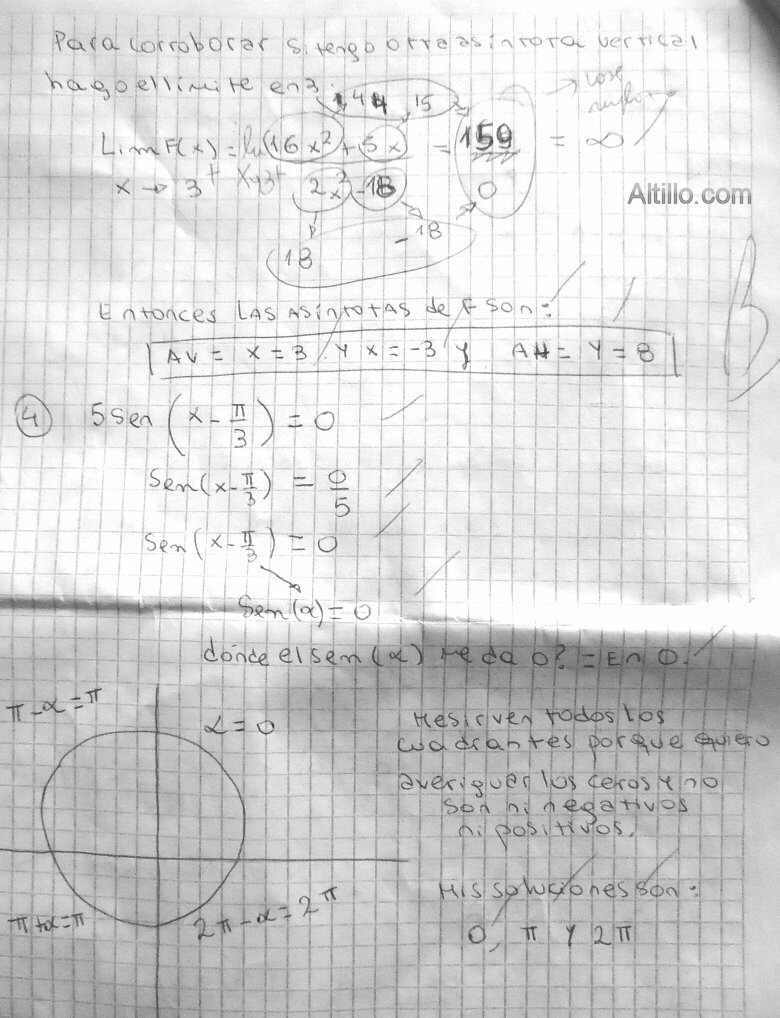 Para corroborar si tengo otra asintota vertical
hago el limite en 3.
144 15
Lim F(x) = 16x² + 5x = 159 = ∞
x → 3⁺ x→3⁺ 2x² - 18 0
18 - 18
Altillo.com
Entonces LAS ASINTOTAS de F SON:
AV = X = 3 Y X = -3 Y AH = Y = 8
4 5 Sen (x - π/3) = 0
Sen (x - π/3) = 0/5
Sen (x - π/3) = 0
Sen (α) = 0
dónde el sen (α) me da 0? = En 0.
π - α = π
α = 0
Me sirven todos los
cuadrantes porque quiero
averiguar los ceros y no
son ni negativos
ni positivos.
π + α = π
2π - α = 2π
Mis soluciones son:
0, π Y 2π